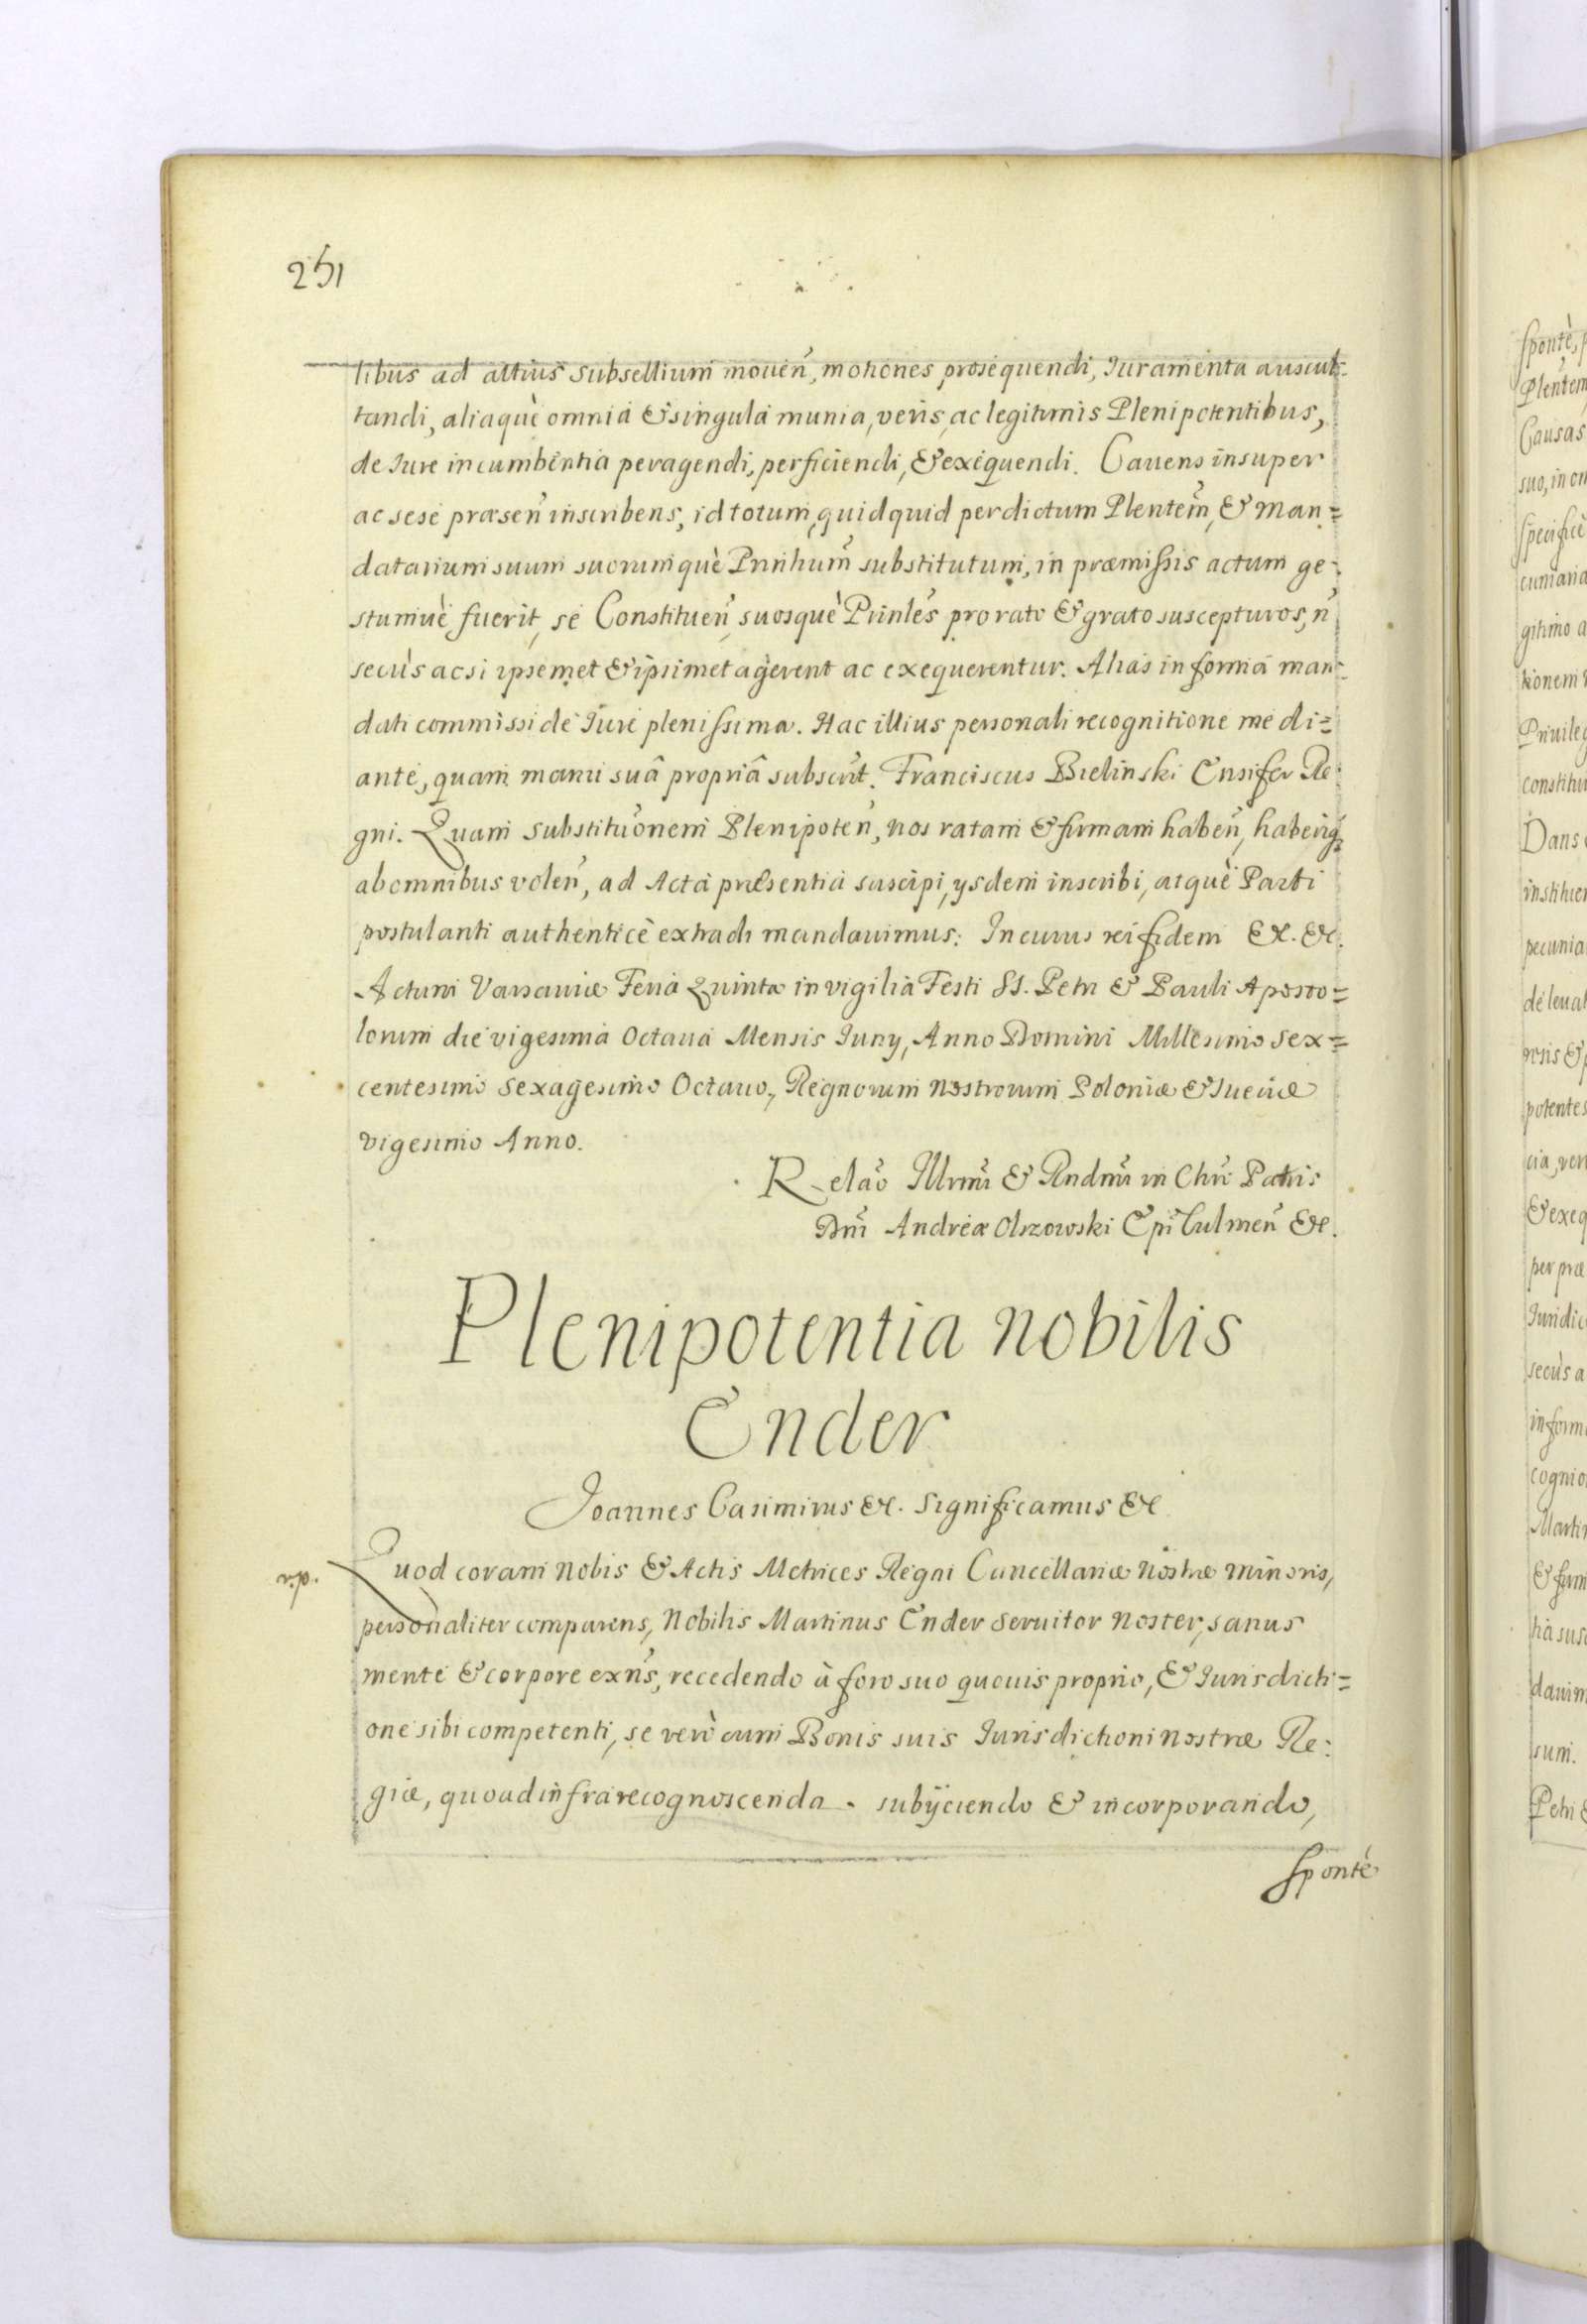 251
libus ad altius subsellium mouen̄, motiones prosequendi, Iuramenta auscul-
tandi, aliaquè omnia & singula munia, veris, ac legitimis Plenipotentibus,
de Iure incumbentia peragendi, perficiendi, & exequendi. Cauens insuper
ac sese præsen̄ inscribens, id totum, quidquid per dictum Plentem̄, & Man=
datarium suum suorumquè Prinlium̄ substitutum, in præmissis actum ge-
stumuè fuerit, se Constituen̄, suosquè Prinles̄ pro rato & grato suscepturos, n̄
secùs ac si ipsemet & ipsimet agerent ac exequerentur. Alias in forma man-
dati commissi de Iure plenissima. Hac illius personali recognitione medi=
ante, quam manu suâ propriâ subscr̄t. Franciscus Bielinski Ensifer Re-
gni. Quam substituōnem Plenipoten̄, nos ratam & firmam haben̄, haberiq;
ab omnibus volen̄, ad Acta præsentia suscipi, ysdem inscribi, atquè Parti
postulanti authenticè extradi mandauimus: In cuius rei fidem &c. &c.
Actum Varsauiæ Feria Quinta in vigilia Festi SS. Petri & Pauli Aposto=
lorum die vigesima Octaua Mensis Iuny, Anno Domini Millesimo Sex=
centesimo Sexagesimo Octauo, Regnorum Nostrorum Poloniæ & Sueciæ
vigesimo Anno.
Relaō Illrmī & Rndmī in Chrō Patris
Dnī Andreæ Olszowski Epī Culmen̄ &c.
Plenipotentia nobilis
Ender
Joannes Casimirus &c. Significamus &c
Quod coram Nobis & Actis Metrices Regni Cancellariæ Nostræ minoris,
personaliter comparens, Nobilis Martinus Ender Seruitor Noster, sanus
mente & corpore exn̄s, recedendo à foro suo quouis proprio, & Iurisdicti=
one sibi competenti, se verò cum Bonis suis Iurisdictioni Nostræ Re-
giæ, quoad infra recognoscenda. subÿciendo & incorporando,
Spontè